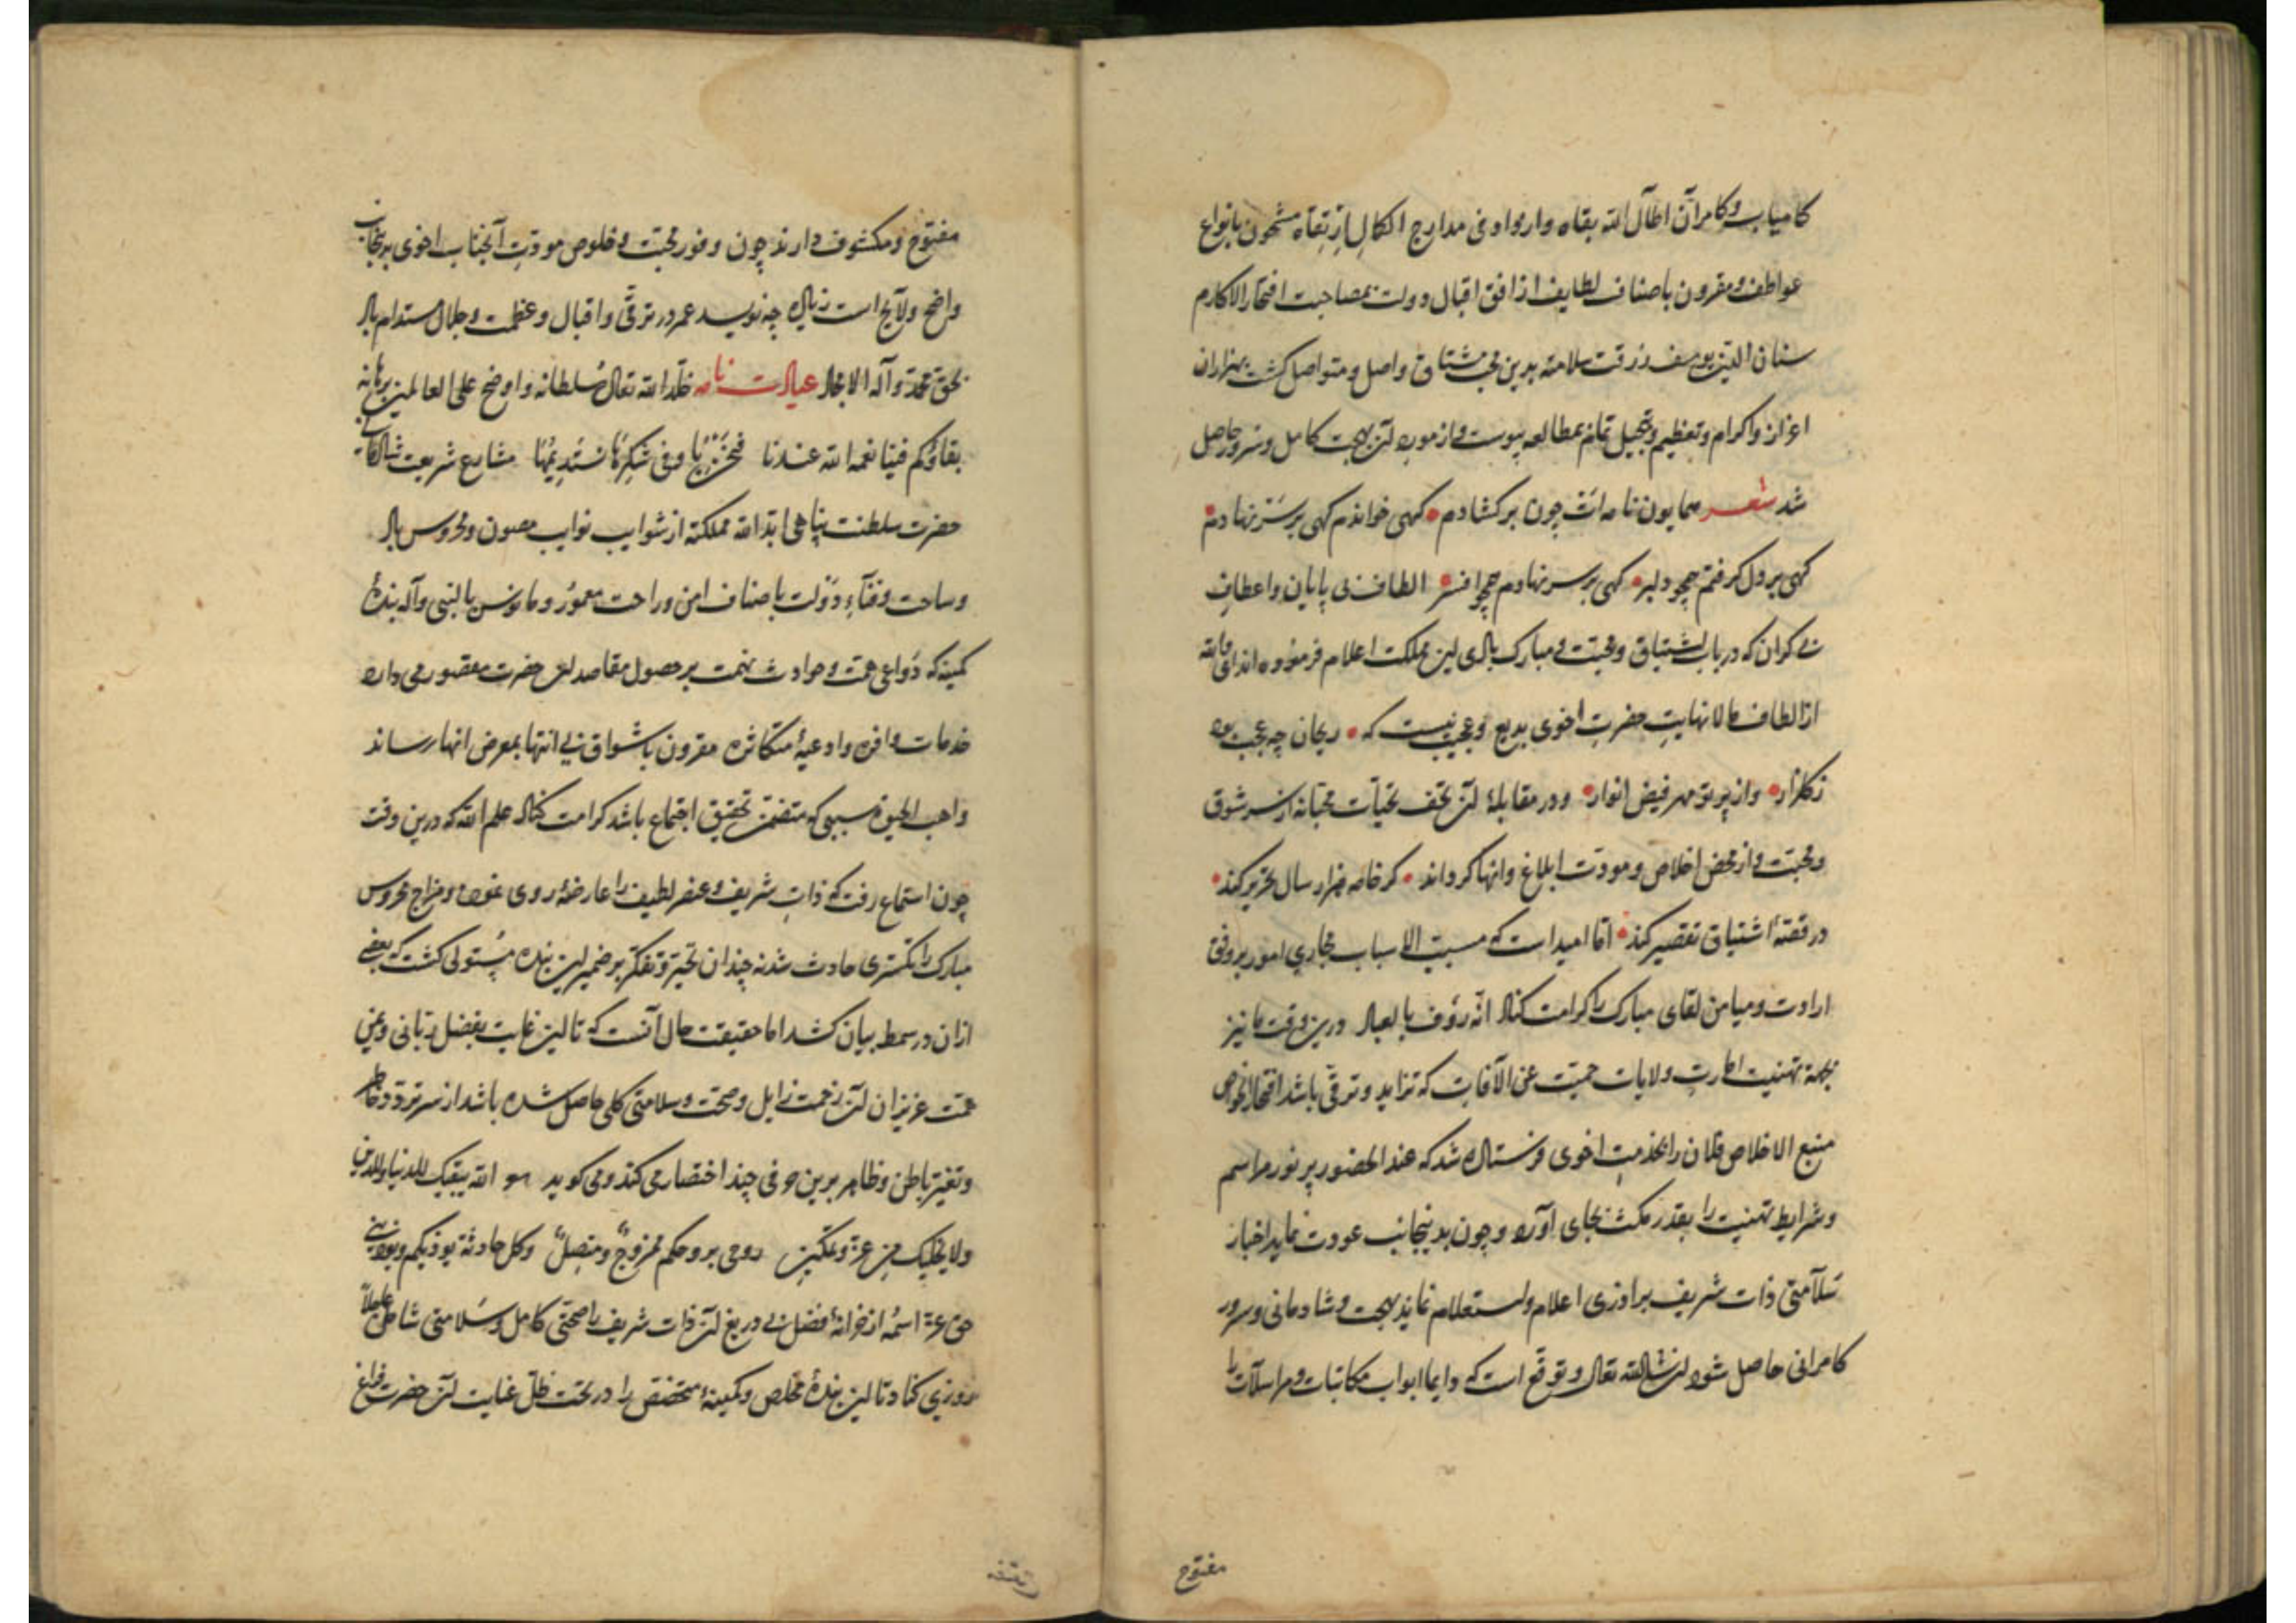 کامیاب و کامران اطال الله بقاه وارواو فی مدارج الکمال ارتقاه مشحون بانواع
عواطف و مقرون باصناف لطایف از افق اقبال دولت بمصاحبت افتخار الاکارم
سنان الدین یوسف رزقت سلامته بدین محب مشتاق واصل و متواصل کشت بهزاران
اعزاز و اکرام و تعظیم و تبجیل تمام بمطالعه پیوست و از مورد آن بهجت کامل و سرور حاصل
شد شعر همایون نامه ات چون برکشادم کهی خواندم کهی بر سر نهادم
کهی بر دل کرفتم همچو دلبر کهی بر سر نهادم همچو افسر الطاف بی پایان و اعطاف
بی کران که در باب اشتیاق و محبت و مبارک بادی این مملکت اعلام فرموده اند
از الطاف مالانهایت حضرت اخوی بدیع و عجیب نیست که ریحان چه عجب بود
زکلزار واز پرتو مهر فیض انوار ودر مقابلهٔ آن تحف تحیات محبانه از سر شوق
ومحبت و از محض اخلاص و مودت ابلاغ و انها کرداند کر خامه هزار سال تحریر کند
در قصهٔ اشتیاق تقصیر کند اما امید است که مسبب الاسباب مجاری امور بر وفق
ارادت و میامن لقای مبارک را کرامت کناد انه رؤف بالعباد درین وقت ما نیز
بجهة تهنیت امارت ولایات حمیت عن الآفات که تزاید و ترقی باشد افتخار الخواص
منبع الاخلاص فلان را بخدمت اخوی فرستاده شد که عند الحضور پر نور مراسم
وشرایط تهنیت را بقدر مکث بجای آورد و چون بدینجانب عودت نماید اخبار
سلامتی ذات شریف برادری اعلام و استعلام نماید بهجت و شادمانی و سرور
کامرانی حاصل شود ان شاالله تعالی و توقع است که دایما ابواب مکاتبات و مراسلات را
مفتوح
مفتوح و مکشوف دارند چون وفور محبت و خلوص مودت آنجناب اخوی بدینجانب
واضح ولایح است زیاده چه نویسد عمر در ترقی و اقبال و عظمت و جلال مستدام باد
بحق محمد و آله الامجاد عیادت نامه خلد الله تعالی سلطانه و اوضح علی العالمین برهانه
بقاؤکم فینا نعمه الله عندنا فنحن وفی شکرها نستدیمها مشارع شریعت
حضرت سلطنت پناهی ابد الله مملکته از شوایب نوایب مصون و محروس باد
وساحت و فناء دولت باصناف امن و راحت معمور و مانوس بالنبی و آله بندهٔ
کمینه که دواعی همت و حوادث نهمت بر حصول مقاصد آن حضرت مقصور می دارد
خدمات وافره و ادعیهٔ متکاثره مقرون باشواق بی انتها بمعرض انها رساند
واهب الحیوة سببی که متضمن تحقیق اجتماع باشد کرامت کناد علم الله که درین وقت
چون استماع رفت که ذات شریف و عنصر لطیف را عارضهٔ روی نمود و مزاج محروس
مبارک را تکسری حادث شده چندان تحیر و تفکر بر ضمیر این بنده مستولی کشت که بعضی
ازان در سمط بیان کشد اما حقیقت حال آنست که تا این غایت بفضل ربانی و یمن
همت عزیزان آن زحمت زایل و صحت و سلامتی کلی حاصل شده باشد از سر تردد خاطر
وتغیر باطن و ظاهر برین حرفی چند اختصار می کند و می کوید الله یبقیک للدنیا وللدین
ولا یخلیک من عز و تمکین روحی بروحکم ممزوج و متصل وکل حادثة یوذیکم ویوذینی
حق عز اسمه از خزانهٔ فضل بی دریغ آن ذات شریف را صحتی کامل و سلامتی شامل عاجلاً
روزی کناد تا این بندهٔ مخلص و کمینهٔ متخصص را در تحت ظل عنایت آن حضرت فراغ